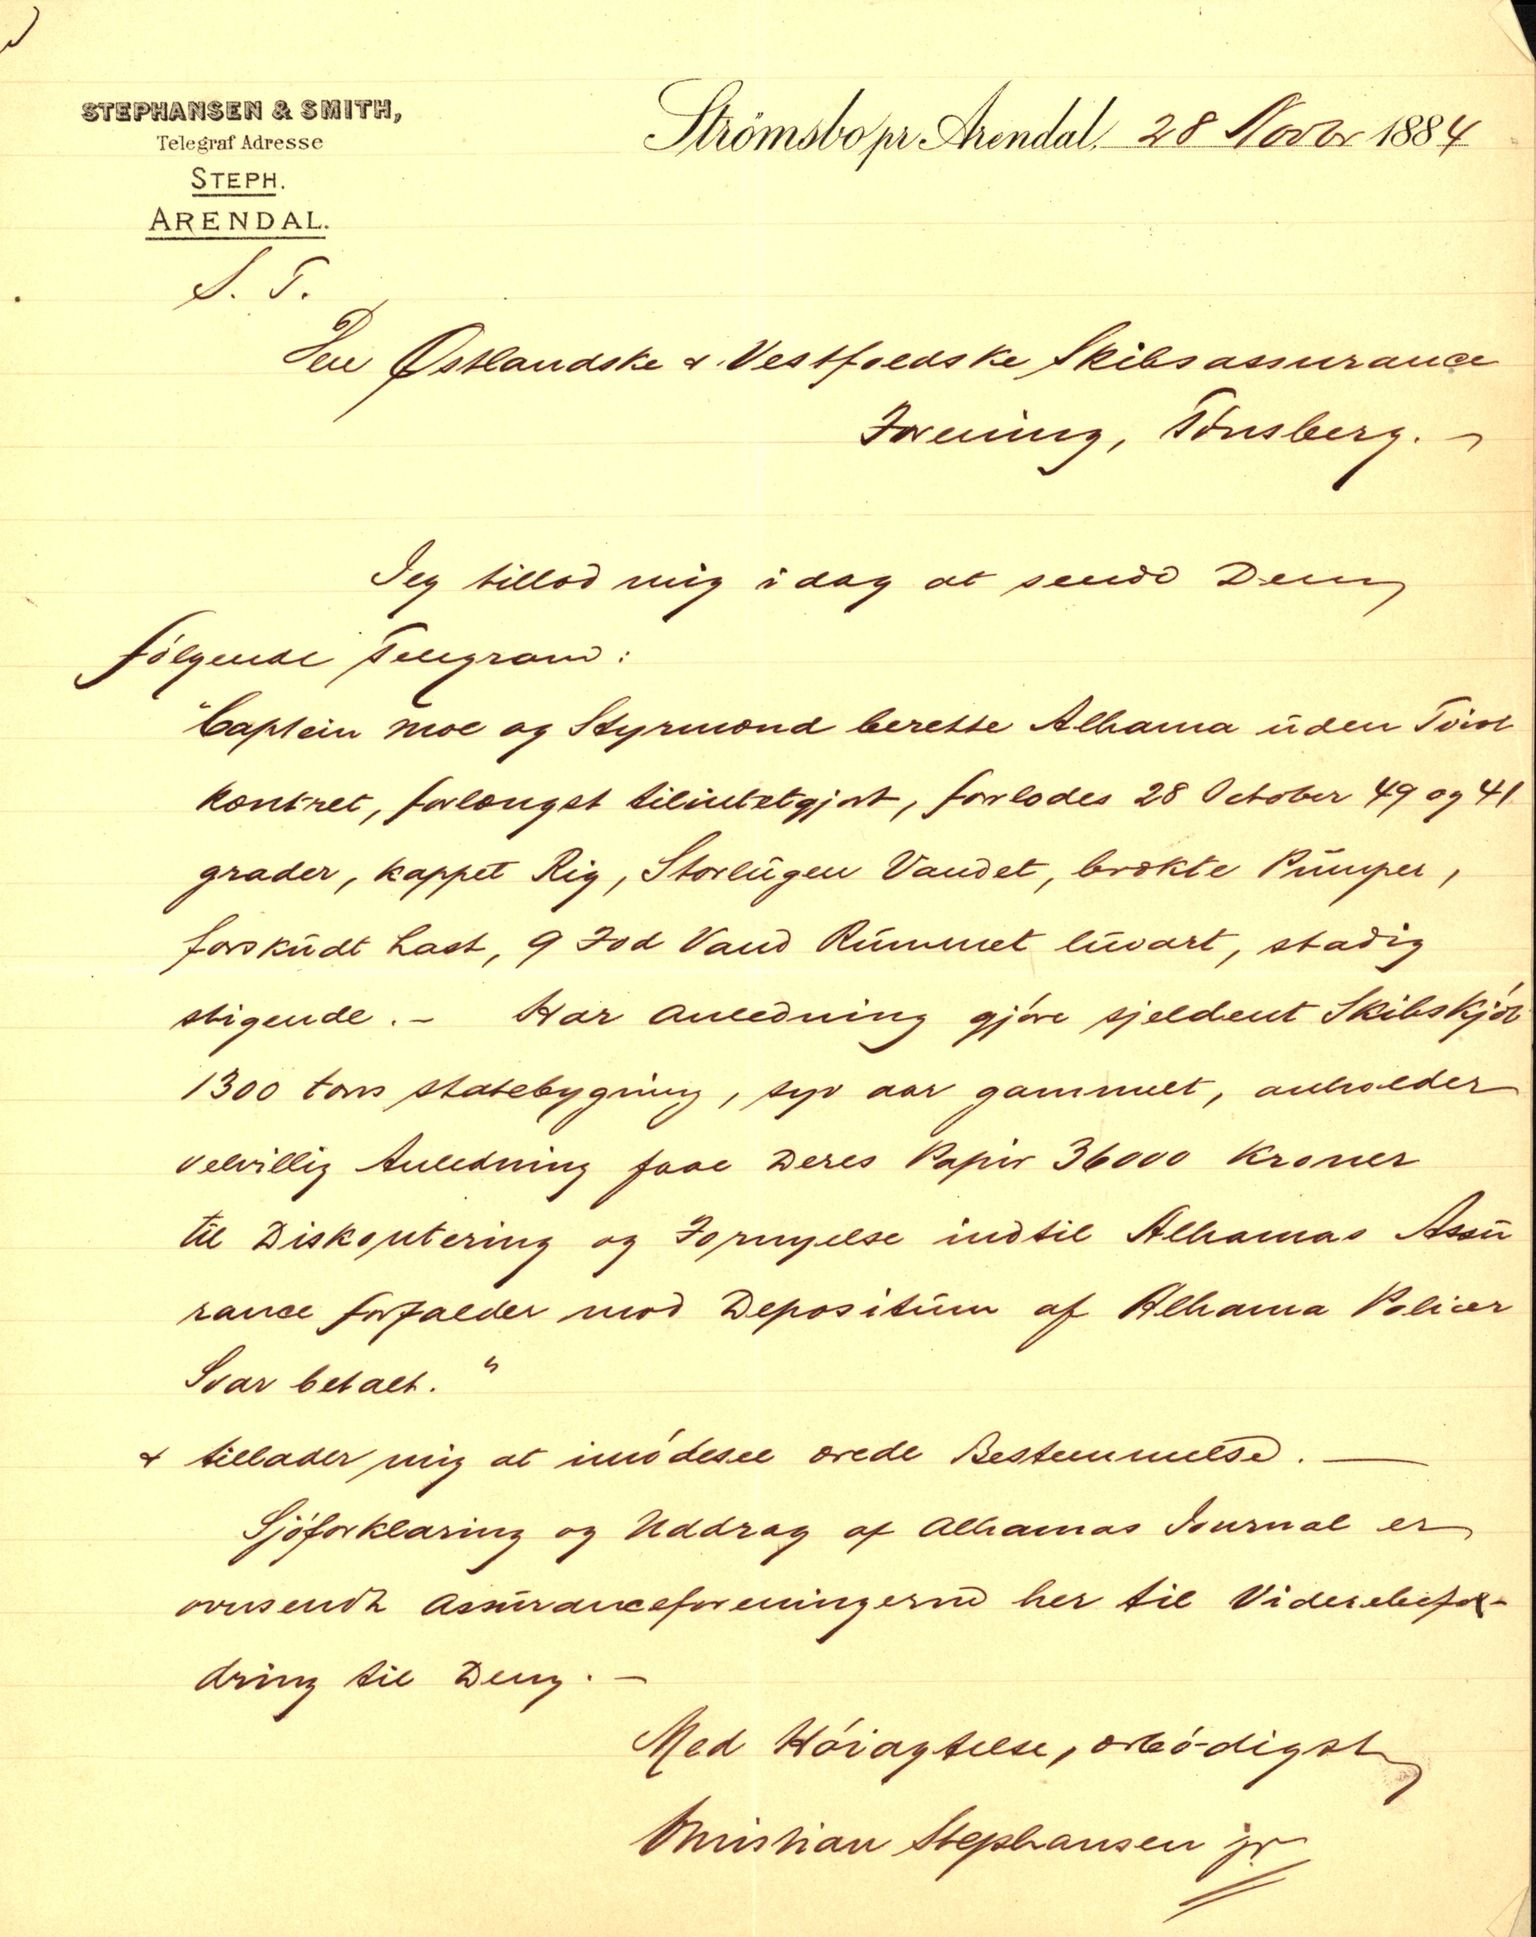 STEPHANSEN & SMITH,
Telegraf Adresse
STEPH.
ARENDAL.
Strömsbo pr. Arendal, 28 Novbr 1884
S. T.
Den Østlandske & Vestfoldske Skibsassurance
Forening, Tønsberg. -
Jeg tillod mig idag at sende Dem
følgende Telegram:
"Captein Moe og Styrmænd berette Alhama uden Tvivl
kæntret, forlængst tilintetgjort, forlodes 28 October 49 og 41
grader, kappet Rig, Storlugen Vandet, brækte Pumper,
forskudt Last, 9 Fod Vand Rummet luvart, stadig
stigende. - Har Anledning gjøre sjeldent Skibskjøb
1300 tons statebygning, syv aar gammelt, anholder
velvillig Anledning faae Deres Papir 36000 Kroner
til Diskontering og Fornyelse indtil Alhamas Assu
rance forfalder mod Depositum af Alhama Policer
Svar betalt."
& tillader mig at imødesee ærede Bestemmelse. -
Sjøforklaring og Uddrag af Alhamas Journal er
oversendt Assuranceforeningerne her til Viderebefor-
dring til Dem. -
Med Høiagtelse, ærbødigst
Christian Stephansen jr